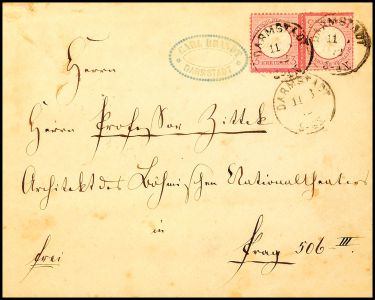 CARL BRANDT
DARMSTADT
DARMSTADT
11
KREUZER
DARMSTADT
11
DARMSTADT
11
Herrn
Herrn Professor Zittek
Architekt des Böhmischen Nationaltheaters
in
frei
Prag 506 III.